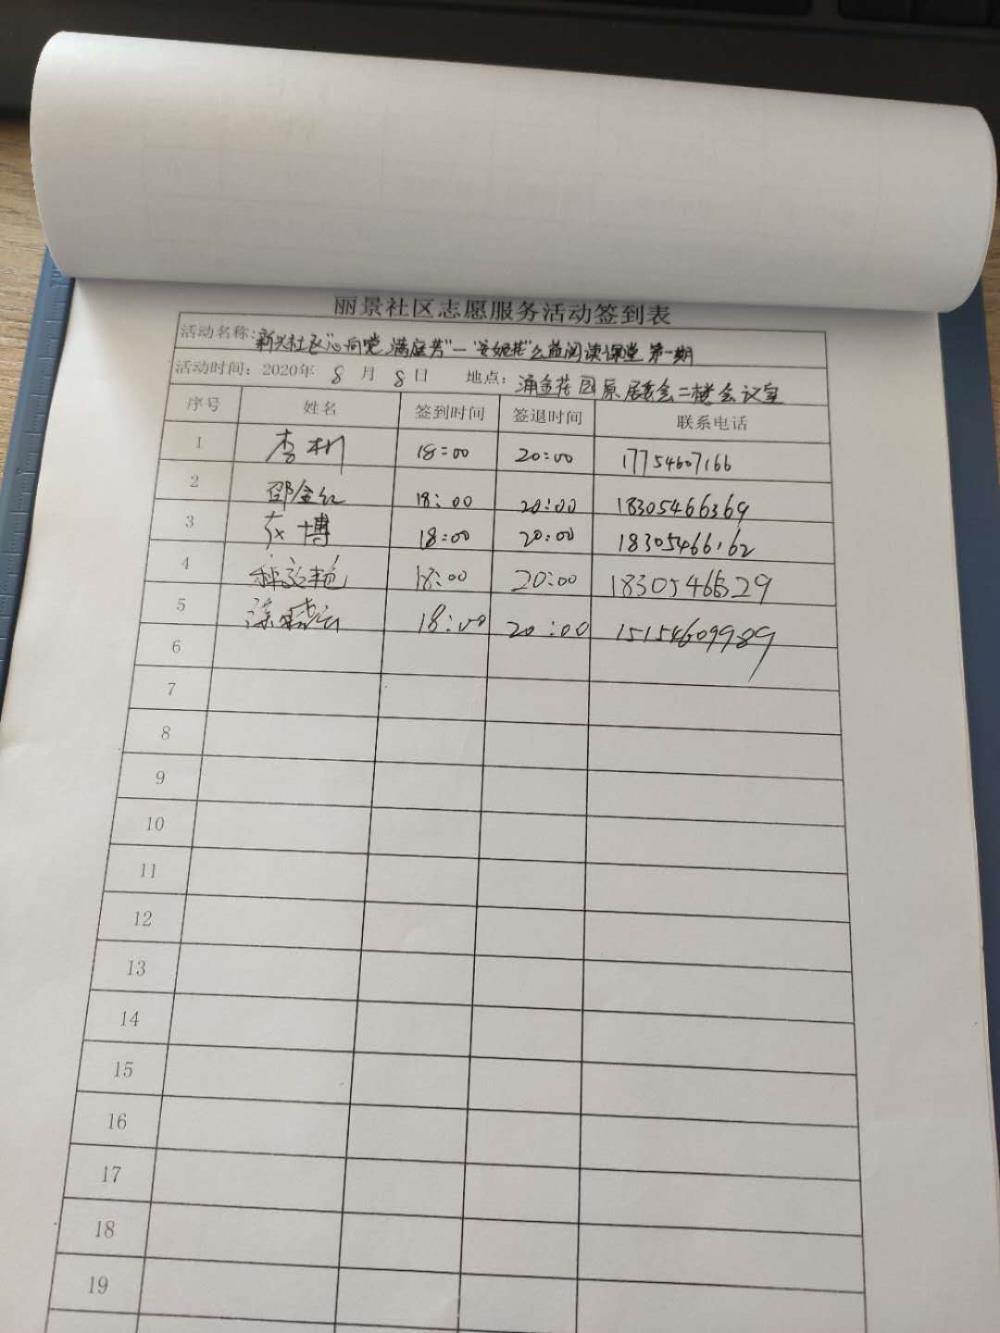 丽景社区志愿服务活动签到表
活动名称:新兴社区"心向党 满庭芳"—"安妮花"公益阅读课堂 第一期
活动时间: 2020年 8 月 8 日 地点: 涌金花园原居委会二楼会议室
序号 姓名 签到时间 签退时间 联系电话
1 李彬 18:00 20:00 17754607166
2 邵金红 18:00 20:00 18305466369
3 博 18:00 20:00 18305466162
4 艳 18:00 20:00
5 18:00 20:00 15154609989
6
7
8
9
10
11
12
13
14
15
16
17
18
19